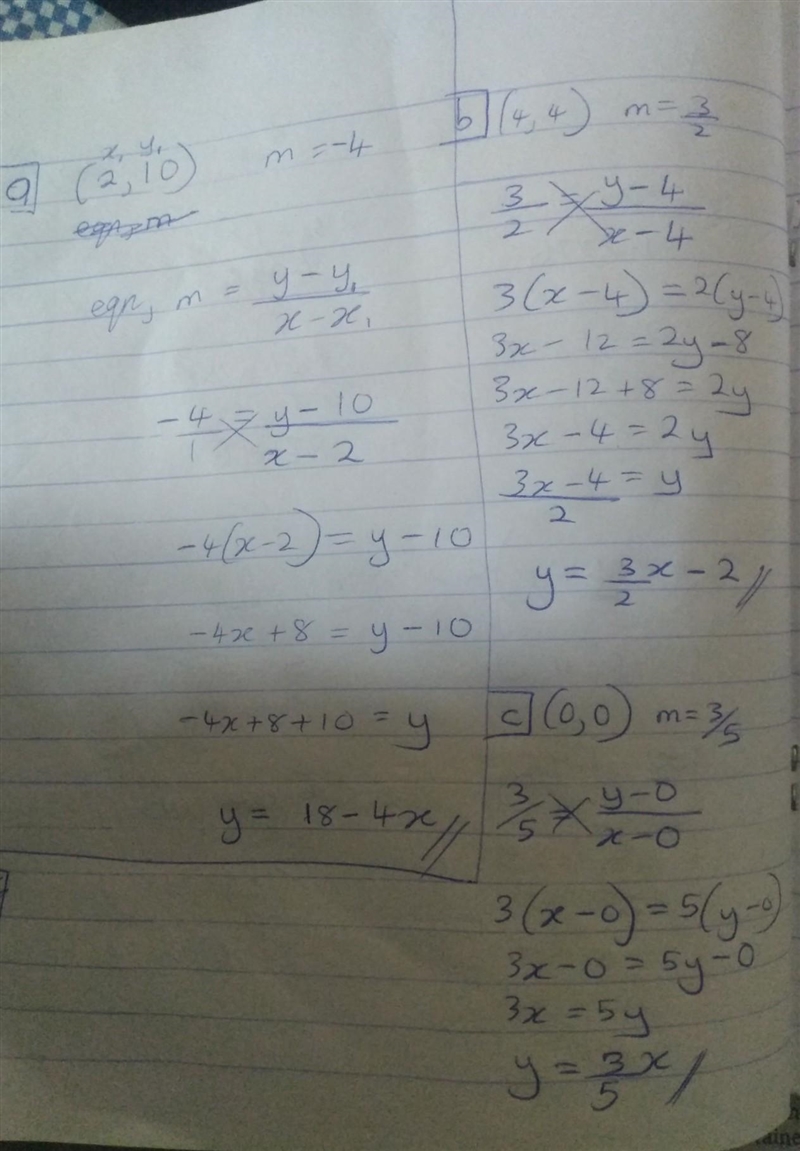 a (2, 10) m = -4
x₁ y₁
eqn, m = y - y₁ / x - x₁
-4/1 = y - 10 / x - 2
-4(x-2) = y - 10
-4x + 8 = y - 10
-4x+8+10 = y
y = 18 - 4x //
b (4, 4) m = 3/2
3/2 = y - 4 / x - 4
3(x - 4) = 2(y-4)
3x - 12 = 2y - 8
3x - 12 + 8 = 2y
3x - 4 = 2y
3x - 4 / 2 = y
y = 3/2 x - 2 //
c (0,0) m = 3/5
3/5 = y-0 / x-0
3(x-0) = 5(y-0)
3x-0 = 5y-0
3x = 5y
y = 3x/5 //